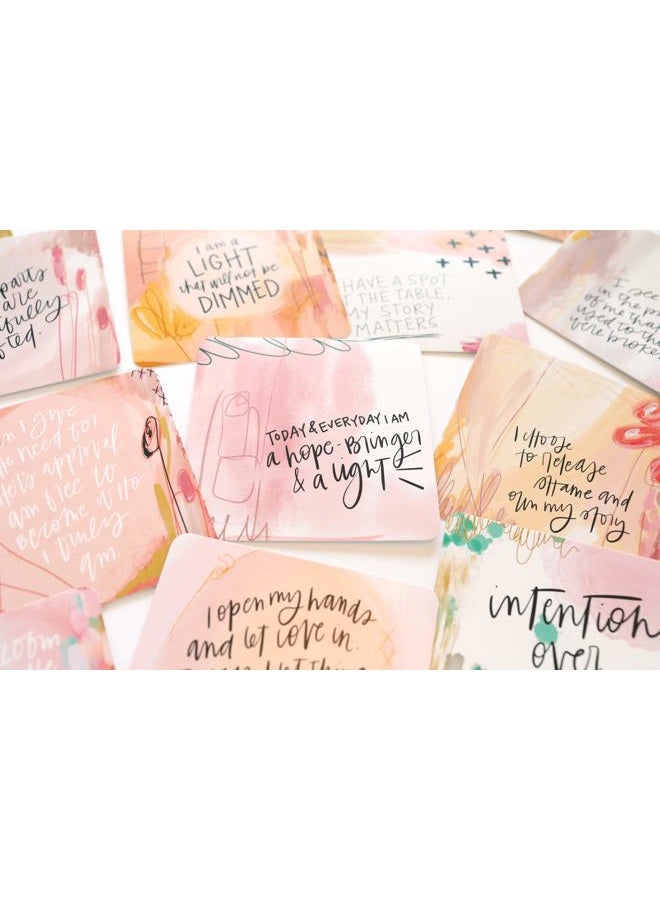 parts
are
I am a
LIGHT
that will not be
DIMMED
HAVE A SPOT
THE TABLE.
MY STORY
MATTERS
I see
in the
of me tha
used to
were broke
need for
approval.
am free to
become who
I truly
am.
TODAY & EVERYDAY I AM
a hope-bringer
& a light
I choose
to release
shame and
own my story
I open my hands
and let love in.
intention
over